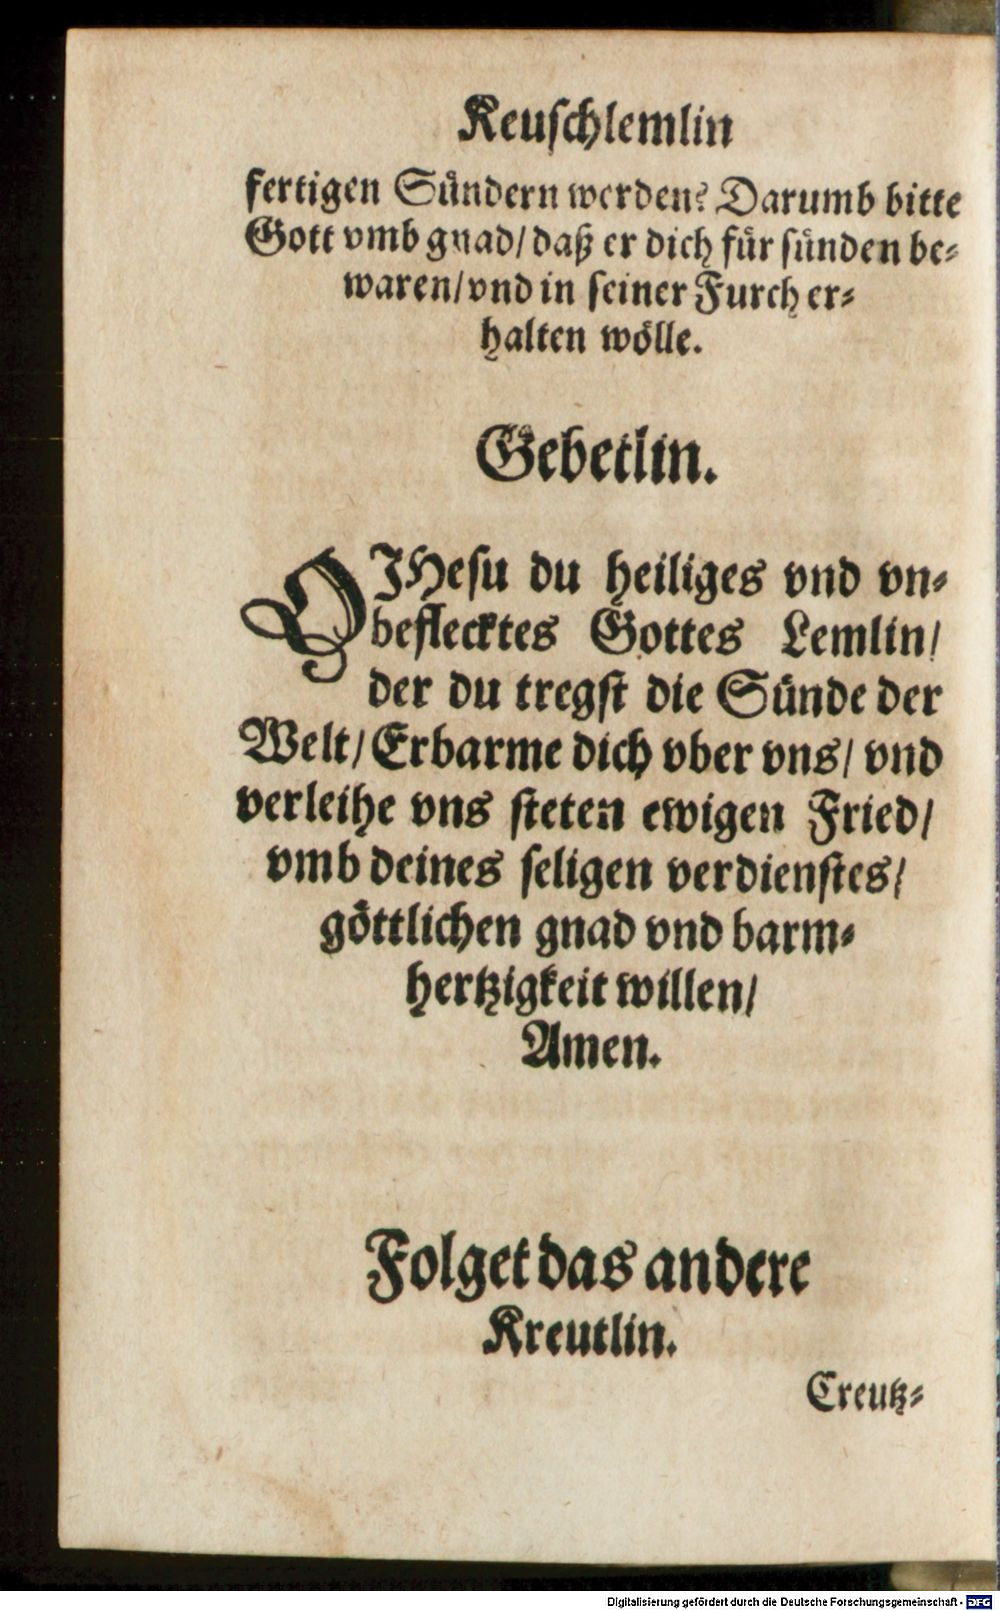 Keuschlemlin
fertigen Sündern werden? Darumb bitte
Gott vmb gnad/ daß er dich für sünden be-
waren/ vnd in seiner Furch er-
halten wölle.
Gebetlin.
O JHesu du heiliges vnd vn-
beflecktes Gottes Lemlin/
der du tregst die Sünde der
Welt/ Erbarme dich vber vns/ vnd
verleihe vns steten ewigen Fried/
vmb deines seligen verdienstes/
göttlichen gnad vnd barm-
hertzigkeit willen/
Amen.
Folget das andere
Kreutlin.
Creutz-
Digitalisierung gefördert durch die Deutsche Forschungsgemeinschaft - DFG